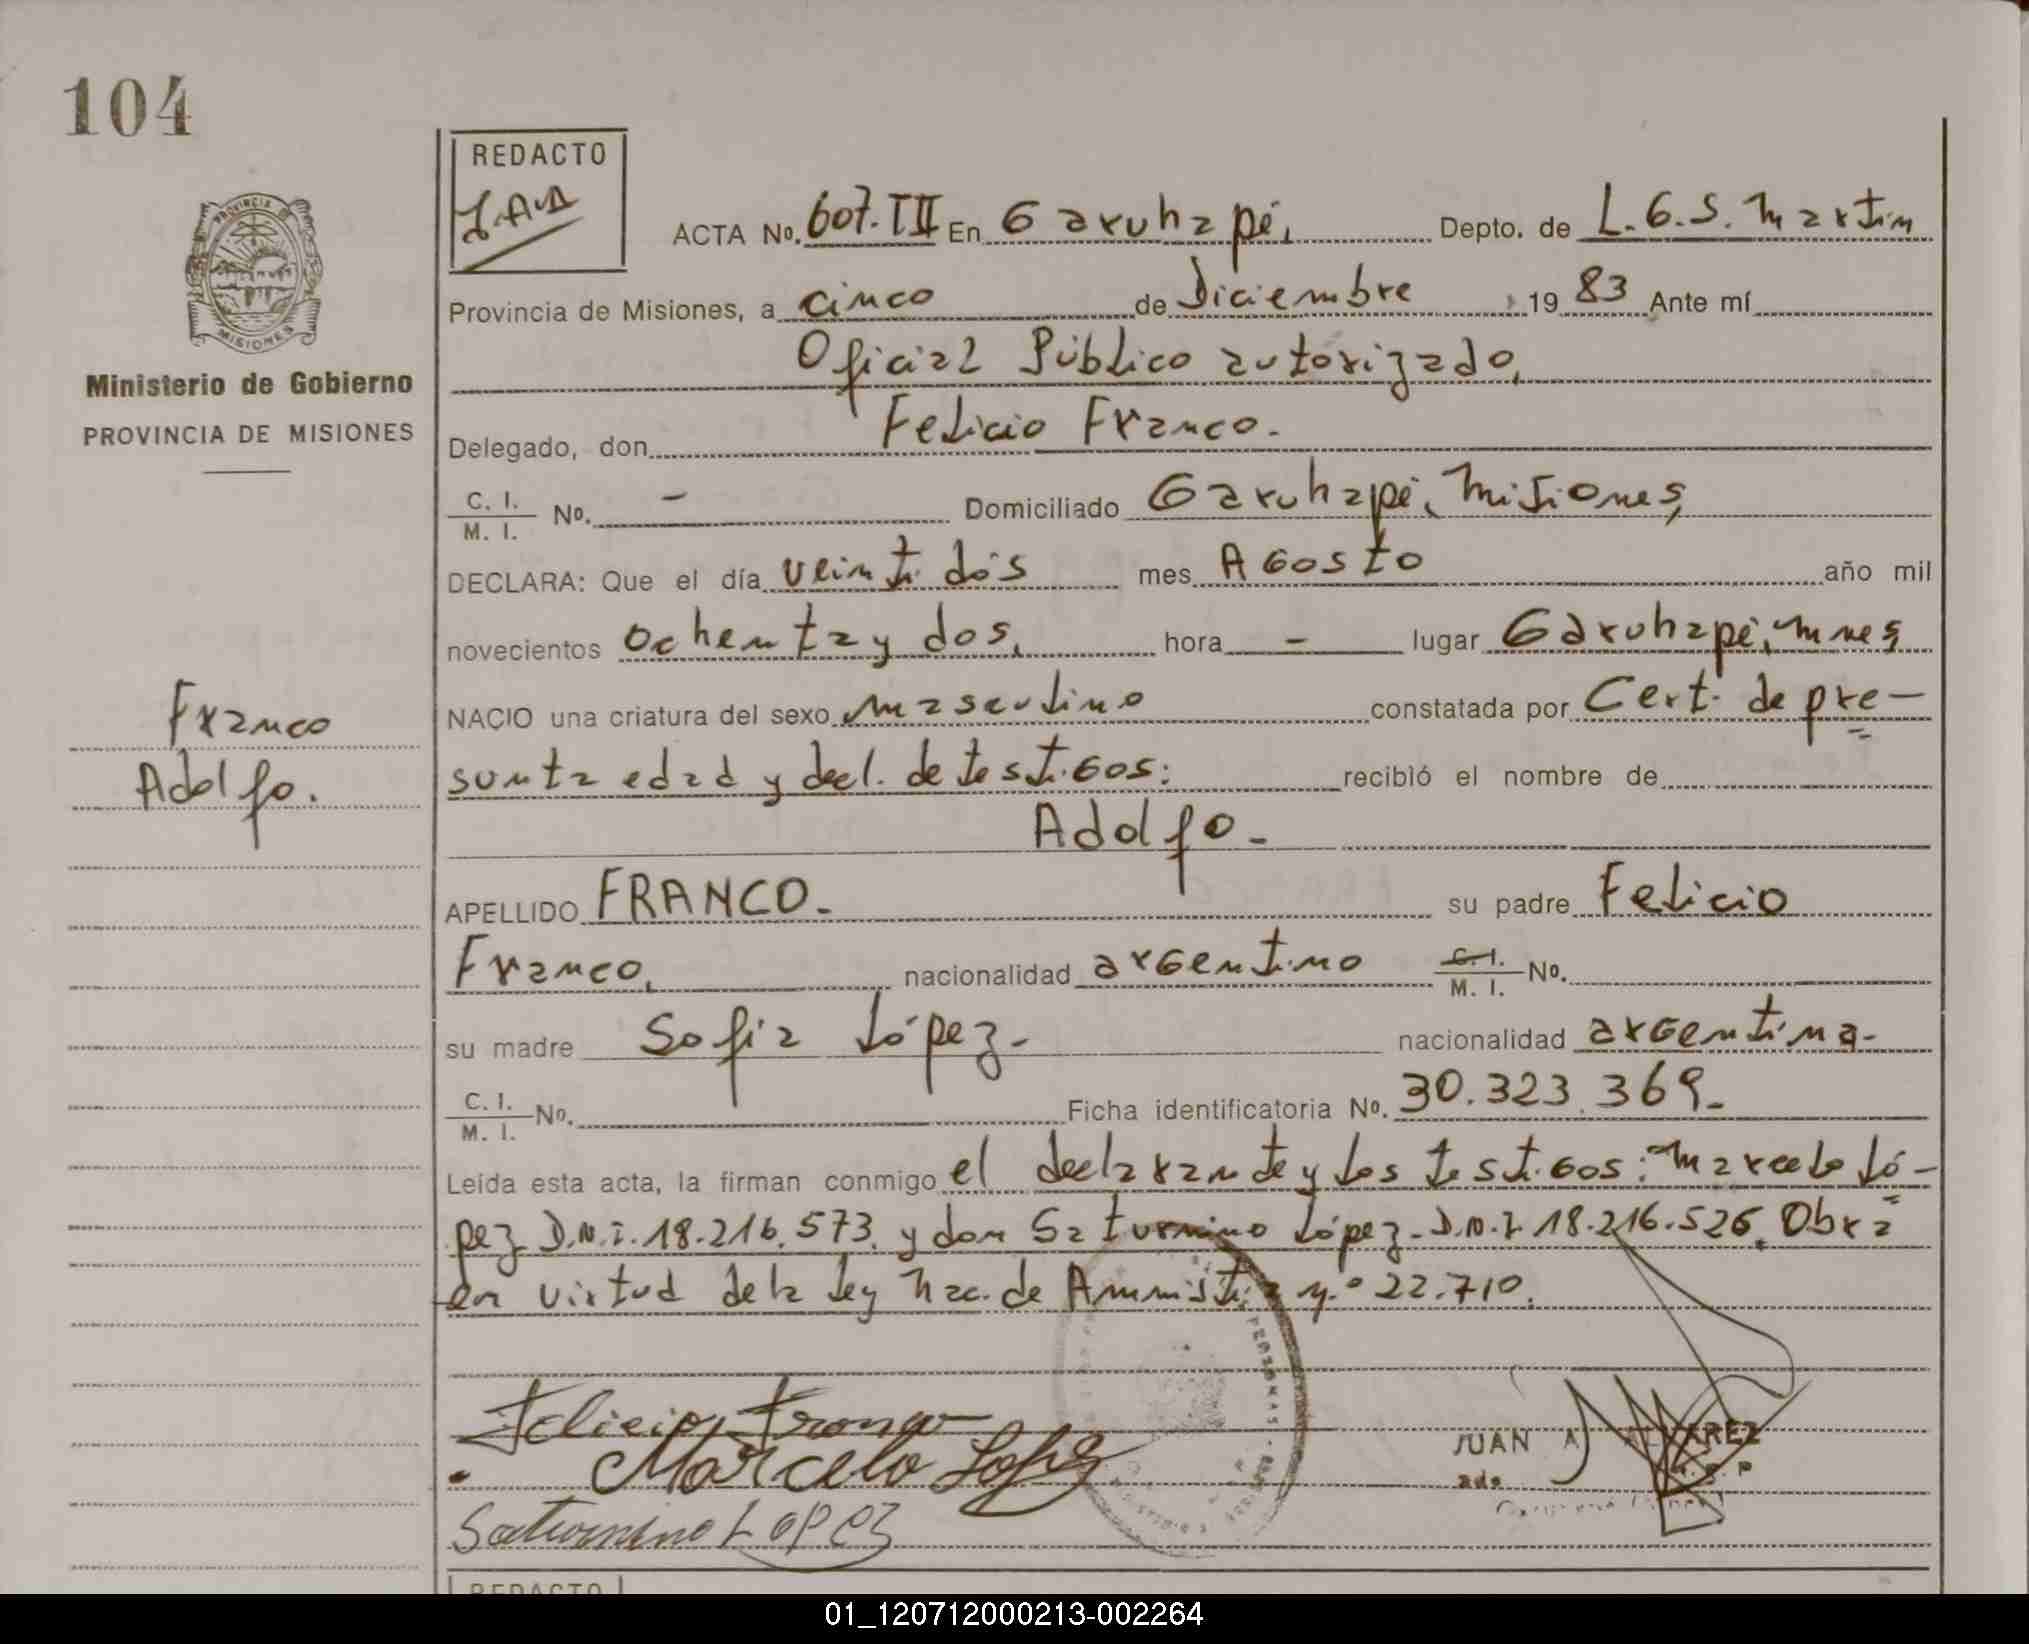 104
REDACTO
J.A.A
PROVINCIA DE
MISIONES
ACTA No. 607.TII En Garuhapé, Depto. de L.G.S. Martin
Provincia de Misiones, a cinco de Diciembre 19 83 Ante mí
Oficial Público autorizado,
Ministerio de Gobierno
PROVINCIA DE MISIONES
Delegado, don Felicio Franco.
C. I. / M. I. No. - Domiciliado Garuhapé, Misiones,
DECLARA: Que el día veinti dós mes AGosto año mil
novecientos ochenta y dos, hora - lugar Garuhapé, Mnes,
NACIO una criatura del sexo masculino constatada por Cert. de pre-
Franco
Adolfo.
sunta edad y decl. de testigos: recibió el nombre de
Adolfo.-
APELLIDO FRANCO.- su padre Felicio
Franco, nacionalidad argentino C. I. / M. I. No.
su madre Sofia López.- nacionalidad argentina.-
C. I. / M. I. No. Ficha identificatoria No. 30.323.369.-
Leída esta acta, la firman conmigo el declarante y los testigos: Marcelo Ló-
pez D.N.I. 18.216.573. y don Saturnino López.- D.N.I. 18.216.526. Obra
en virtud de la ley Nac. de Ammistia n.º 22.710.
Felicio Franco
Marcelo Lopez
Saturnino LOPEZ
JUAN A ALVAREZ
REDACTO
01_120712000213-002264